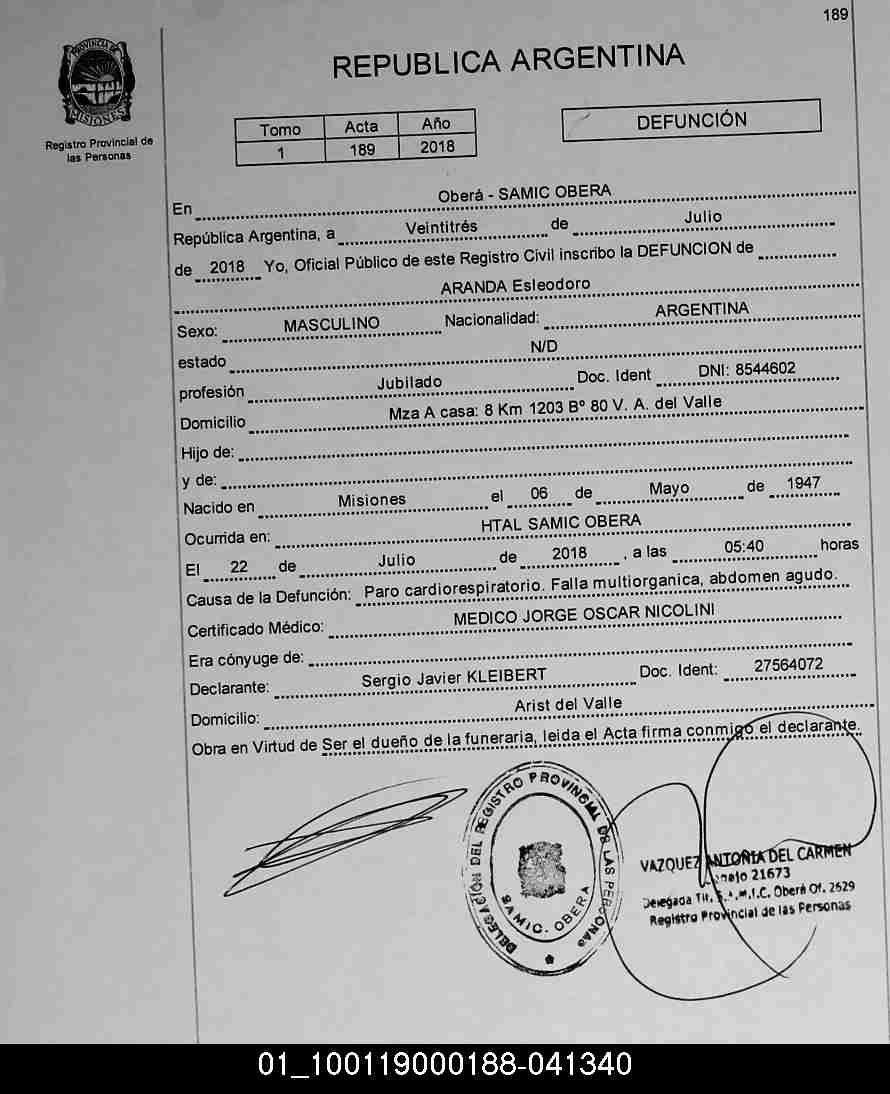 189
PROVINCIA DE
MISIONES
Registro Provincial de
las Personas
REPUBLICA ARGENTINA
Tomo Acta Año
1 189 2018
DEFUNCIÓN
En Oberá - SAMIC OBERA
República Argentina, a Veintitrés de Julio
de 2018 Yo, Oficial Público de este Registro Civil inscribo la DEFUNCION de
ARANDA Esleodoro
Sexo: MASCULINO Nacionalidad: ARGENTINA
estado N/D
profesión Jubilado Doc. Ident DNI: 8544602
Domicilio Mza A casa: 8 Km 1203 Bº 80 V. A. del Valle
Hijo de:
y de:
Nacido en Misiones el 06 de Mayo de 1947
Ocurrida en: HTAL SAMIC OBERA
El 22 de Julio de 2018 , a las 05:40 horas
Causa de la Defunción: Paro cardiorespiratorio. Falla multiorganica, abdomen agudo.
Certificado Médico: MEDICO JORGE OSCAR NICOLINI
Era cónyuge de:
Declarante: Sergio Javier KLEIBERT Doc. Ident: 27564072
Domicilio: Arist del Valle
Obra en Virtud de Ser el dueño de la funeraria, leida el Acta firma conmigo el declarante.
DELEGACIÓN DEL REGISTRO PROVINCIAL DE LAS PERSONAS
SAMIC. OBERA
VAZQUEZ ANTONIA DEL CARMEN
21673
Delegada Tit. S.A.M.I.C. Oberá Of. 2629
Registro Provincial de las Personas
01_100119000188-041340